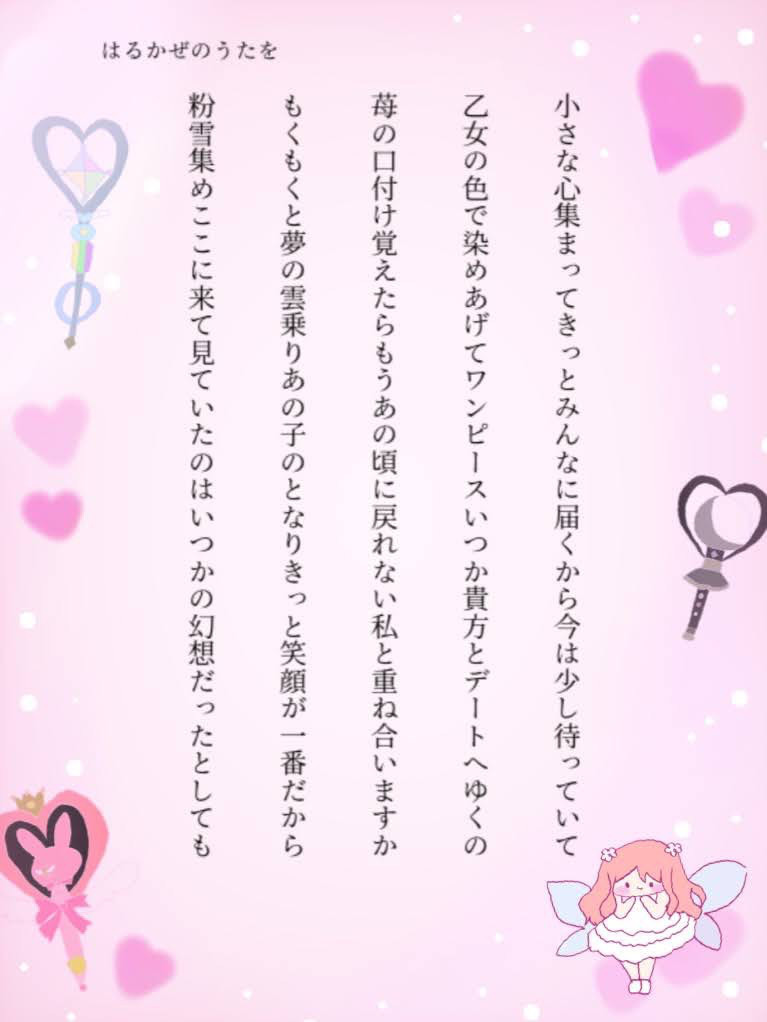 はるかぜのうたを
小さな心集まってきっとみんなに届くから今は少し待っていて
乙女の色で染めあげてワンピースいつか貴方とデートへゆくの
苺の口付け覚えたらもうあの頃に戻れない私と重ね合いますか
もくもくと夢の雲乗りあの子のとなりきっと笑顔が一番だから
粉雪集めここに来て見ていたのはいつかの幻想だったとしても